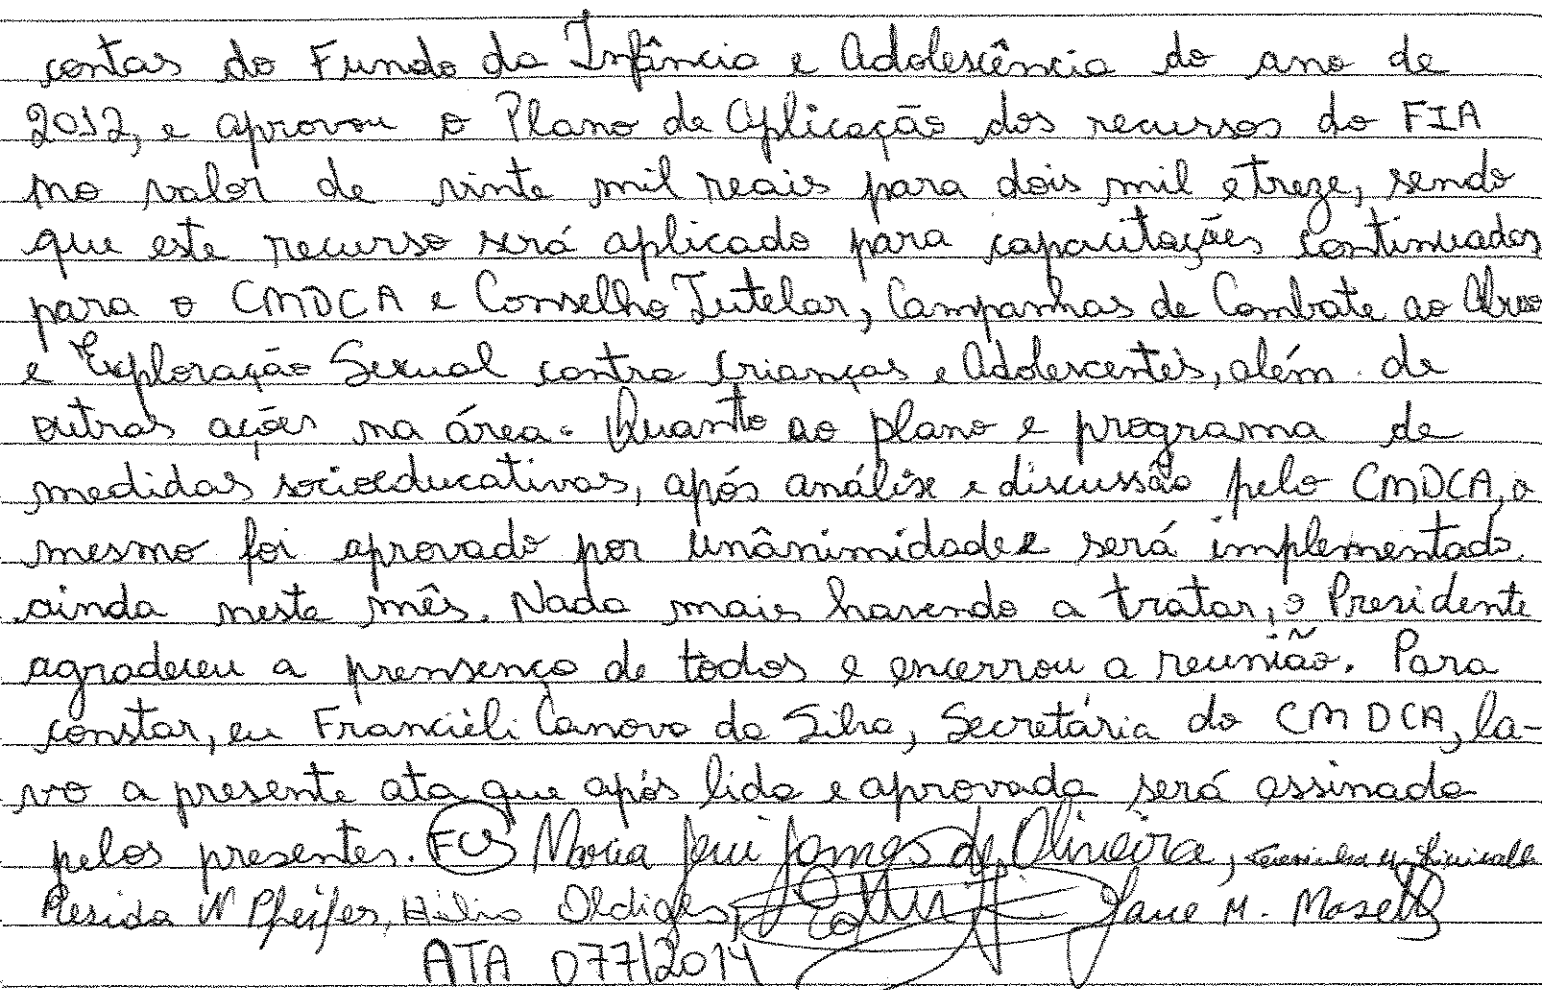 contas do Fundo da Infância e Adolescência do ano de
2012, e aprovou o Plano de Aplicação dos recursos do FIA
no valor de vinte mil reais para dois mil e treze, sendo
que este recurso será aplicado para capacitações continuadas
para o CMDCA e Conselho Tutelar, Campanhas de Combate ao Abuso
e Exploração Sexual contra Crianças e Adolescentes, além de
outras ações na área. Quanto ao plano e programa de
medidas socioeducativas, após análise e discussão pelo CMDCA, o
mesmo foi aprovado por unânimidade e será implementado
ainda neste mês. Nada mais havendo a tratar, o Presidente
agradeceu a prensença de todos e encerrou a reunião. Para
constar, eu Franciéli Canova da Silva, Secretária do CMDCA, la-
vo a presente ata que após lida e aprovada será assinada
pelos presentes. FCS Maria de Oliveira,
Pfeifer, Hélio Oldiges, Jane M.
ATA 077/2014